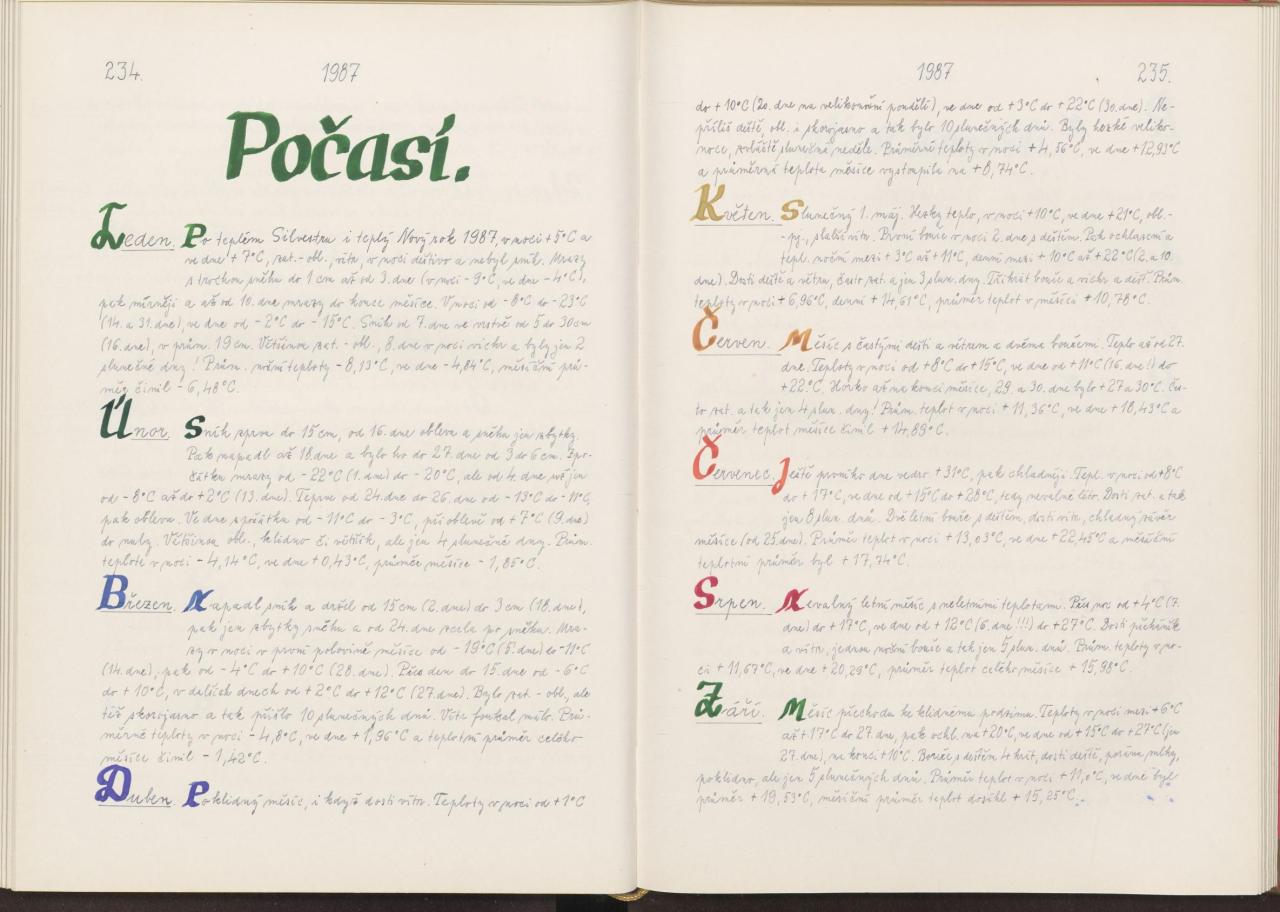 234.
1987
Počasí.
Leden. Po teplém Silvestru i teplý Nový rok 1987, v noci +5°C a
ve dne +7°C, zat.-obl., vítr, v noci deštivo a nebyl sníh. Mrazy
s trochou sněhu do 1 cm až od 3. dne (v noci -9°C, ve dne -4°C),
pak mírněji a až od 10. dne mrazy do konce měsíce. V noci od -8°C do -23°C
(14. a 31. dne), ve dne od -2°C do -15°C. Sníh od 7. dne ve vrstvě od 5 do 30 cm
(16. dne), v prům. 19 cm. Většinou zat.-obl., 8. dne v noci vichr a byly jen 2
slunečné dny! Prům. noční teploty -8,13°C, ve dne -4,84°C, měsíční prů-
měr činil -6,48°C.
Únor. Sníh zprvu do 15 cm, od 16. dne obleva a sněhu jen zbytky.
Pak napadl až 18. dne a bylo ho do 27. dne od 3 do 6 cm. Zpo-
čátku mrazy od -22°C (1. dne) do -20°C, ale od 4. dne už jen
od -8°C až do +2°C (13. dne). Teprve od 24. dne do 26. dne od -13°C do -11°C,
pak obleva. Ve dne zpočátku od -11°C do -3°C, při oblevě od +7°C (9. dne)
do nuly. Většinou obl., klidno či větřík, ale jen 4 slunečné dny. Prům.
teplota v noci -4,14°C, ve dne +0,43°C, průměr měsíce -1,85°C.
Březen. Napadl sníh a držel od 15 cm (2. dne) do 3 cm (18. dne),
pak jen zbytky sněhu a od 24. dne zcela po sněhu. Mra-
zy v noci v první polovině měsíce od -19°C (5. dne) do -11°C
(14. dne), pak od -4°C do +10°C (28. dne). Přes den do 15. dne od -6°C
do +10°C, v dalších dnech od +2°C do +12°C (27. dne). Bylo zat.-obl., ale
též skorojasno a tak přišlo 10 slunečných dnů. Vítr foukal málo. Prů-
měrné teploty v noci -4,8°C, ve dne +1,96°C a teplotní průměr celého
měsíce činil -1,42°C.
Duben. Poklidný měsíc, i když dosti větru. Teploty v noci od +1°C
1987
235.
do +10°C (20. dne na velikonoční pondělí), ve dne od +3°C do +22°C (30. dne). Ne-
příliš deště, obl. i skorojasno a tak bylo 10 slunečných dnů. Byly hezké veliko-
noce, zvláště slunečná neděle. Průměrné teploty v noci +4,56°C, ve dne +12,93°C
a průměrná teplota měsíce vystoupila na +8,74°C.
Květen. Slunečný 1. máj. Hezky teplo, v noci +10°C, ve dne +21°C, obl.-
slabší vítr. První bouře v noci 2. dne s deštěm. Pak ochlazení a
tepl. noční mezi +3°C až +11°C, denní mezi +10°C až +22°C (2. a 10.
dne). Dosti deště a větru, často zat. a jen 3 slun. dny. Třikrát bouře a vichr a déšť. Prům.
teploty v noci +6,96°C, denní +14,61°C, průměr teplot v měsíci +10,78°C.
Červen. Měsíc s častými dešti a větrem a dvěma bouřemi. Teplo až od 27.
dne. Teploty v noci od +8°C do +15°C, ve dne od +11°C (16. dne!) do
+22°C. Horko až na konci měsíce, 29. a 30. dne bylo +27 a 30°C. Čas-
to zat. a tak jen 4 slun. dny! Prům. teplot v noci +11,36°C, ve dne +18,43°C a
průměr teplot měsíce činil +14,89°C.
Červenec. Ještě prvního dne vedro +31°C, pak chladněji. Tepl. v noci od +8°C
do +17°C, ve dne od +15°C do +28°C, tedy nevalné léto. Dosti zat. a tak
jen 8 slun. dnů. Dvě letní bouře s deštěm, dosti větru, chladný závěr
měsíce (od 25. dne). Průměr teplot v noci +13,03°C, ve dne +22,45°C a měsíční
teplotní průměr byl +17,74°C.
Srpen. Nevalný letní měsíc s neletními teplotami. Přes noc od +4°C (7.
dne) do +17°C, ve dne od +12°C (6. dne!!!) do +27°C. Dosti přeháněk
a větru, jednou noční bouře a tak jen 5 slun. dnů. Prům. teploty v no-
ci +11,67°C, ve dne +20,29°C, průměr teplot celého měsíce +15,98°C.
Září. Měsíc přechodu ke klidnému podzimu. Teploty v noci mezi +6°C
až +17°C do 27. dne, pak ochl. na +20°C, ve dne od +15°C do +27°C (jen
27. dne), na konci +10°C. Bouře s deštěm 4 krát, dosti deště, poráno mlhy,
poklidno, ale jen 5 slunečných dnů. Průměr teplot v noci +11,0°C, ve dne byl
průměr +19,53°C, měsíční průměr teplot dosáhl +15,25°C.